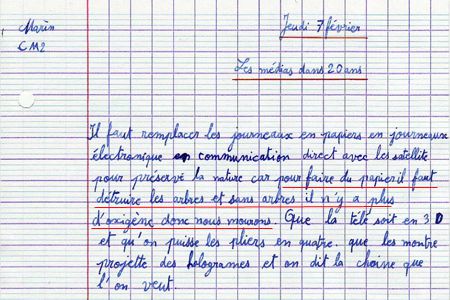 Marin
CM2
Jeudi 7 février
Les médias dans 20 ans
Il faut remplacer les journeaux en papiers en journeaux
électronique en communication direct avec les satellite
pour préservé la nature car pour faire du papier il faut
détruire les arbres et sans arbres il n'y a plus
d'oxigène donc nous mourons. Que la télé soit en 3D
et qu'on puisse les pliers en quatre. que les montre
projette des hologrames et on dit la chaine que
l'on veut.